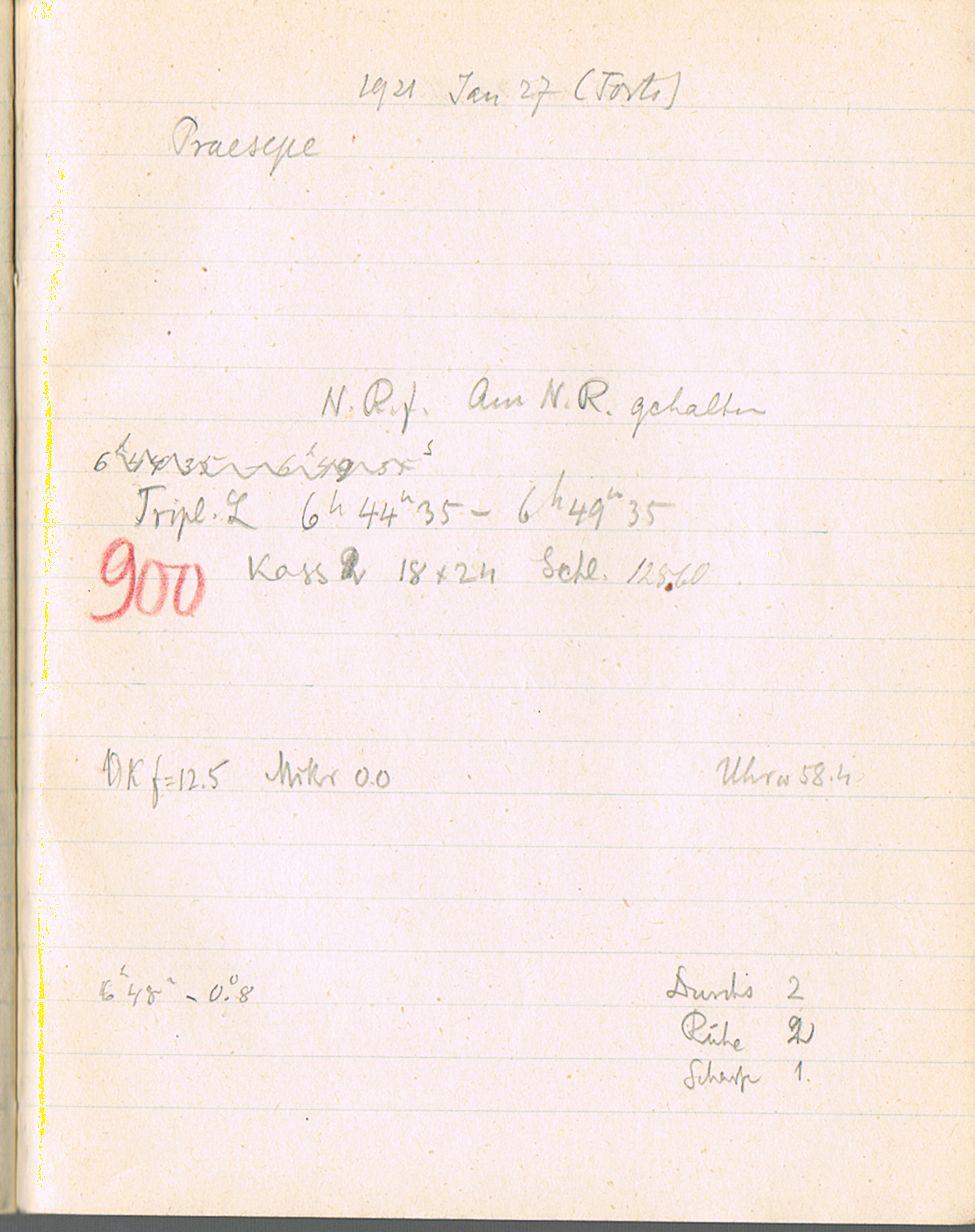 1921 Jan 27 (Forts)
Praesepe
N.R.f. Am N.R. gehalten
Tripl. L 6h 44m 35 - 6h 49m 35
900 Kass 2 18x24 Schl. 1260
DK f=12.5 Mikr 0.0 Uhrw 58.4
6h 48m - 0.°8 Durchs 2
Ruhe 2
Schärfe 1.